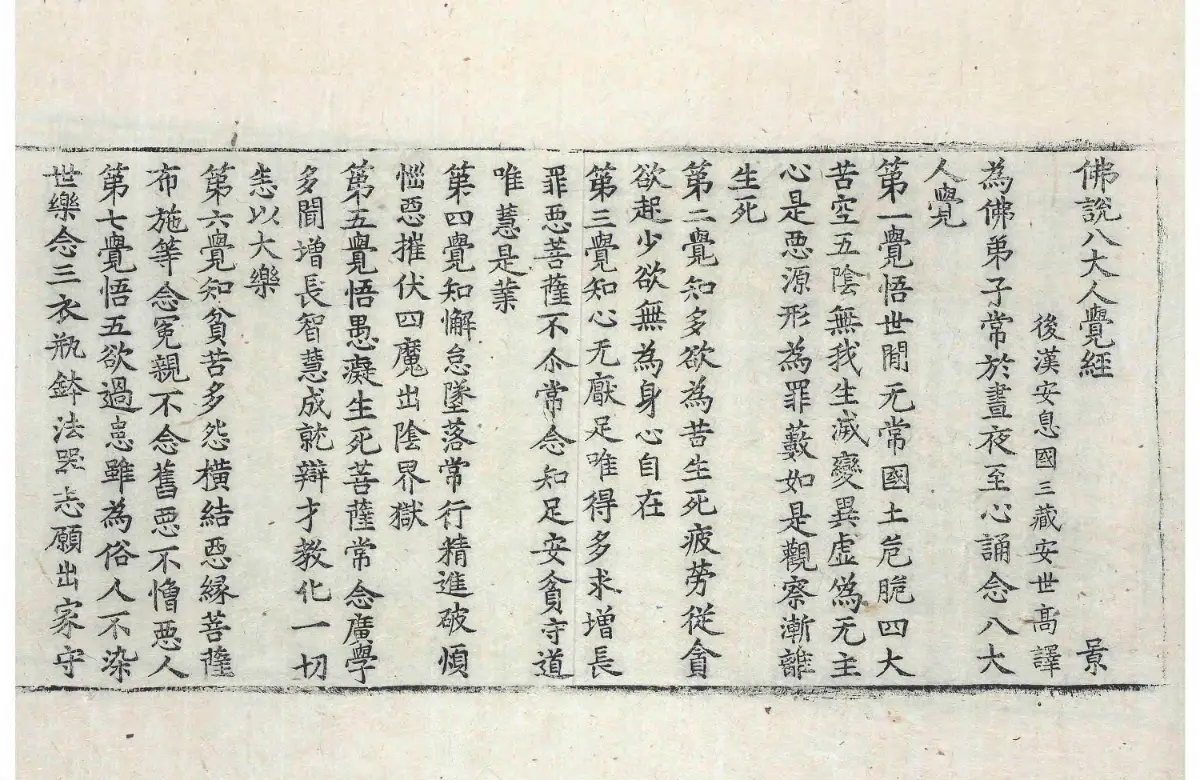 佛說八大人覺經 景
後漢安息國三藏安世高譯
為佛弟子常於晝夜至心誦念八大
人覺
第一覺悟世閒无常國土危脆四大
苦空五陰無我生滅變異虛偽无主
心是惡源形為罪藪如是觀察漸離
生死
第二覺知多欲為苦生死疲勞從貪
欲起少欲無為身心自在
第三覺知心无厭足唯得多求增長
罪惡菩薩不尒常念知足安貪守道
唯慧是業
第四覺知懈怠墜落常行精進破煩
惱惡摧伏四魔出陰界獄
第五覺悟愚癡生死菩薩常念廣學
多聞增長智慧成就辯才教化一切
悉以大樂
第六覺知貧苦多怨橫結惡緣菩薩
布施等念冤親不念舊惡不憎惡人
第七覺悟五欲過患雖為俗人不染
世樂念三衣瓶鉢法器志願出家守